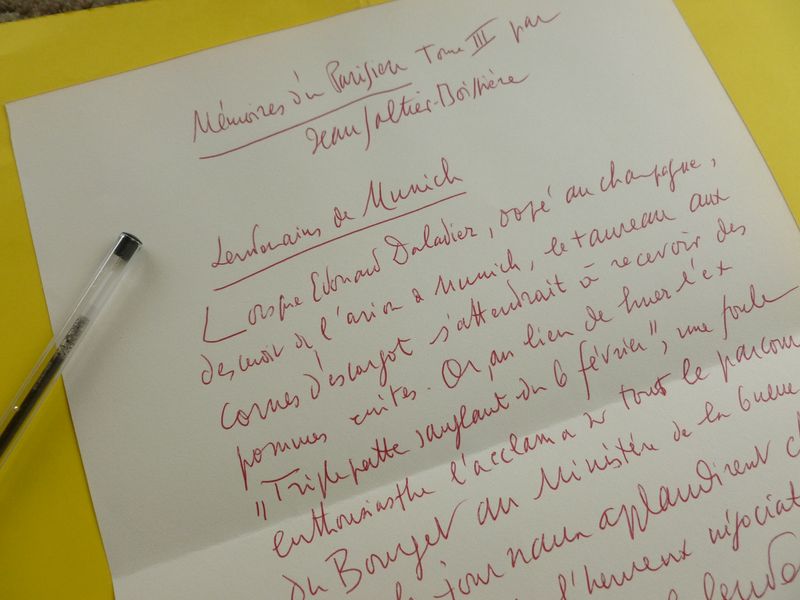 Mémoires d'un Parisien Tome III par
Jean Galtier-Boissière
Lendemains de Munich
Lorsque Edouard Daladier, dopé au champagne,
descend de l'avion à Munich, le taureau aux
cornes d'escargot s'attendrait à recevoir des
pommes cuites. Or au lieu de huer l'ex
"Triplepatte sanglant du 6 février", une foule
enthousiasthe l'acclama sur tout le parcours
du Bourget au Ministère de la Guerre
journaux aplaudirent
l'heureux négociat